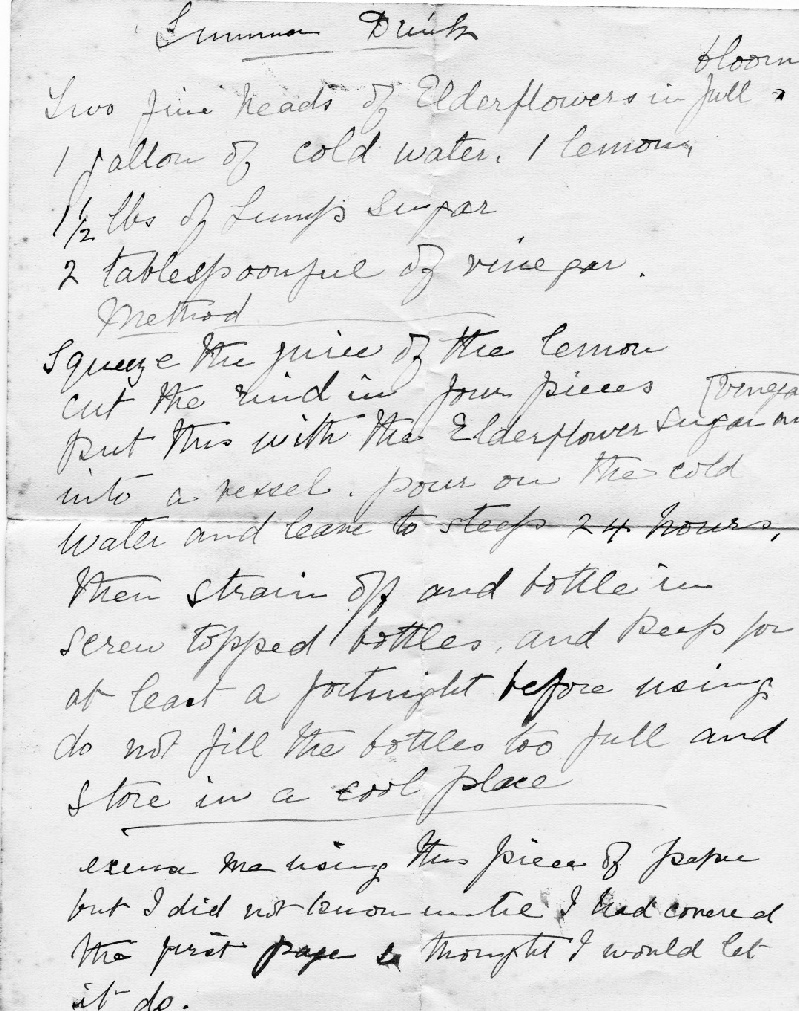 Summer Drink
Two fine heads of Elderflowers in full bloom
1 gallon of cold water. 1 lemon,
1 1/2 lbs of Lump Sugar
2 tablespoonful of vinegar.
Method
Squeeze the juice of the lemon
cut the rind in four pieces
put this with the Elderflower sugar and [vinegar
into a vessel. pour on the cold
water and leave to steep 24 hours,
then strain off and bottle in
screw topped bottles, and keep for
at least a fortnight before using
do not fill the bottles too full and
store in a cool place
excuse me using this piece of paper
but I did not know until I had covered
the first page so thought I would let
it do.